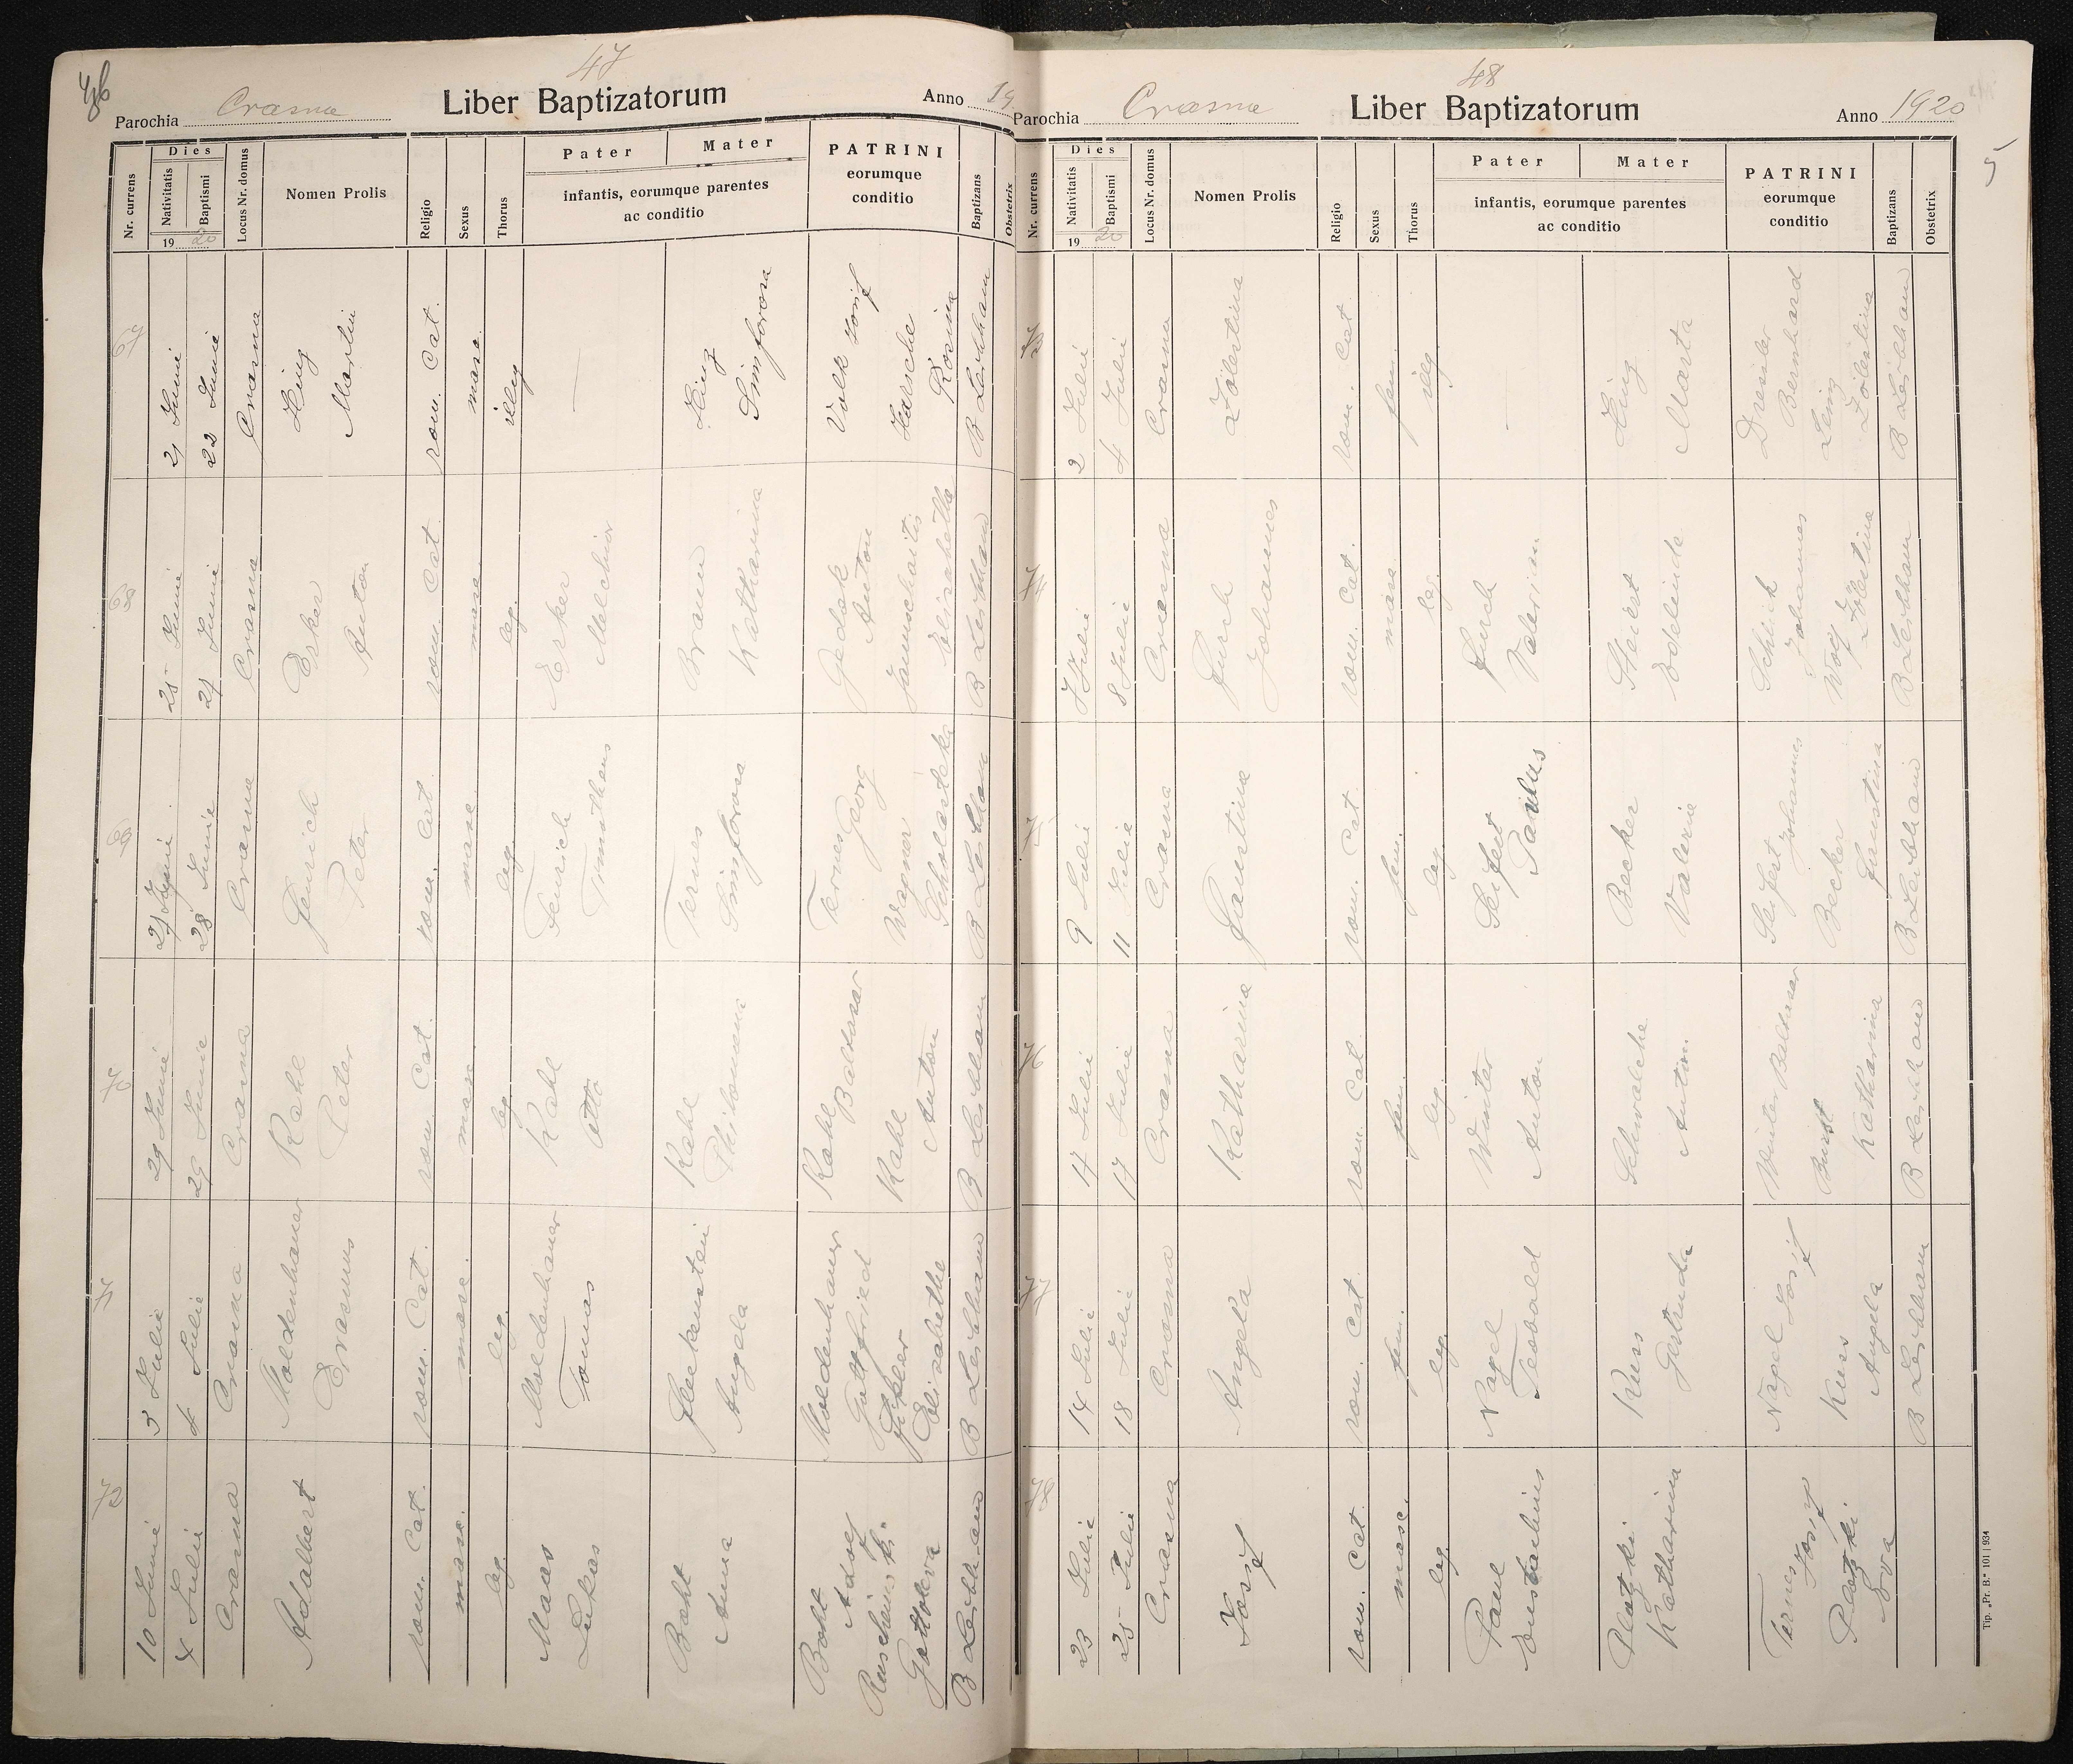 46
47
Parochia Crasna Liber Baptizatorum Anno 19
Nr. currens
Dies
Nativitatis
Baptismi
19 20
Locus Nr. domus
Nomen Prolis
Religio
Sexus
Thorus
Pater Mater
infantis, eorumque parentes
ac conditio
PATRINI
eorumque
conditio
Baptizans
Obstetrix
67
21 Junii
22 Junii
Crasna
Martin
rom. Cat.
masc.
illeg
—
Simforosa
Volk Iosif
Rosina
B Leibham
68
25 Junii
27 Junii
Crasna
Erker
Anton
rom. Cat.
masc.
leg.
Erker
Melchior
Braun
Katharina
Gedak
Anton
Janoschaitis
Elisabetha
B Leibham
69
27 Junii
28 Junii
Crasna
Fenrich
Peter
rom. Cat.
masc.
leg.
Fenrich
Timotheus
Ternes
Simforosa
Ternes
Georg
Wagner
Scholasteka
B Leibham
70
29 Junii
29 Junii
Crasna
Kahl
Peter
rom. Cat.
masc.
leg.
Kahl
Otto
Kahl
Philomena
Kahl
Baltasar
Kahl
Anton
B Leibham
71
3 Julii
4 Julii
Crasna
Moldenhauer
Erasmus
rom. Cat.
masc.
leg.
Moldenhauer
Tomas
Fleckenstein
Angela
Moldenhauer
Gottfried
Elisabetha
B Leibham
72
10 Junii
4 Julii
Crasna
Adalbert
rom. Cat.
masc.
leg.
Maas
Lukas
Bocht
Anna
Bocht
B Leibham
48
5
Parochia Crasna Liber Baptizatorum Anno 1920
Nr. currens
Dies
Nativitatis
Baptismi
19 20
Locus Nr. domus
Nomen Prolis
Religio
Sexus
Thorus
Pater Mater
infantis, eorumque parentes
ac conditio
PATRINI
eorumque
conditio
Baptizans
Obstetrix
2 Julii
4 Julii
Crasna
Zölestina
rom. Cat.
fem.
illeg
—
Marta
Dressler
Bernhard
Zölestina
B Leibham
7 Julii
8 Julii
Crasna
Furch
Johannes
rom. Cat.
masc.
leg.
Furch
Valerian
Steiert
Johannes
Wolf
Zölestina
B Leibham
9 Julii
11 Julii
Crasna
Faustina
rom. Cat.
fem.
leg.
Seifert
Paulus
Becker
Valeria
Seifert Johannes
Becker
Faustina
B Leibham
76
17 Julii
17 Julii
Crasna
Katharina
rom. Cat.
fem.
leg.
Winter
Anton
Schwalche
Winter Baltasar
Katharina
B Leibham
77
14 Julii
18 Julii
Crasna
Angela
rom. Cat.
fem.
leg.
Nagel
Teobald
Kuss
Gertruda
Nagel Iosif
Kuss
Angela
B Leibham
78
23 Julii
25 Julii
Crasna
Iosif
rom. Cat.
masc.
leg.
Paul
Plotzki
Katharina
Ternes
Iosif
Plotzki
Eva
Tip. „Pr. B." 101 | 934